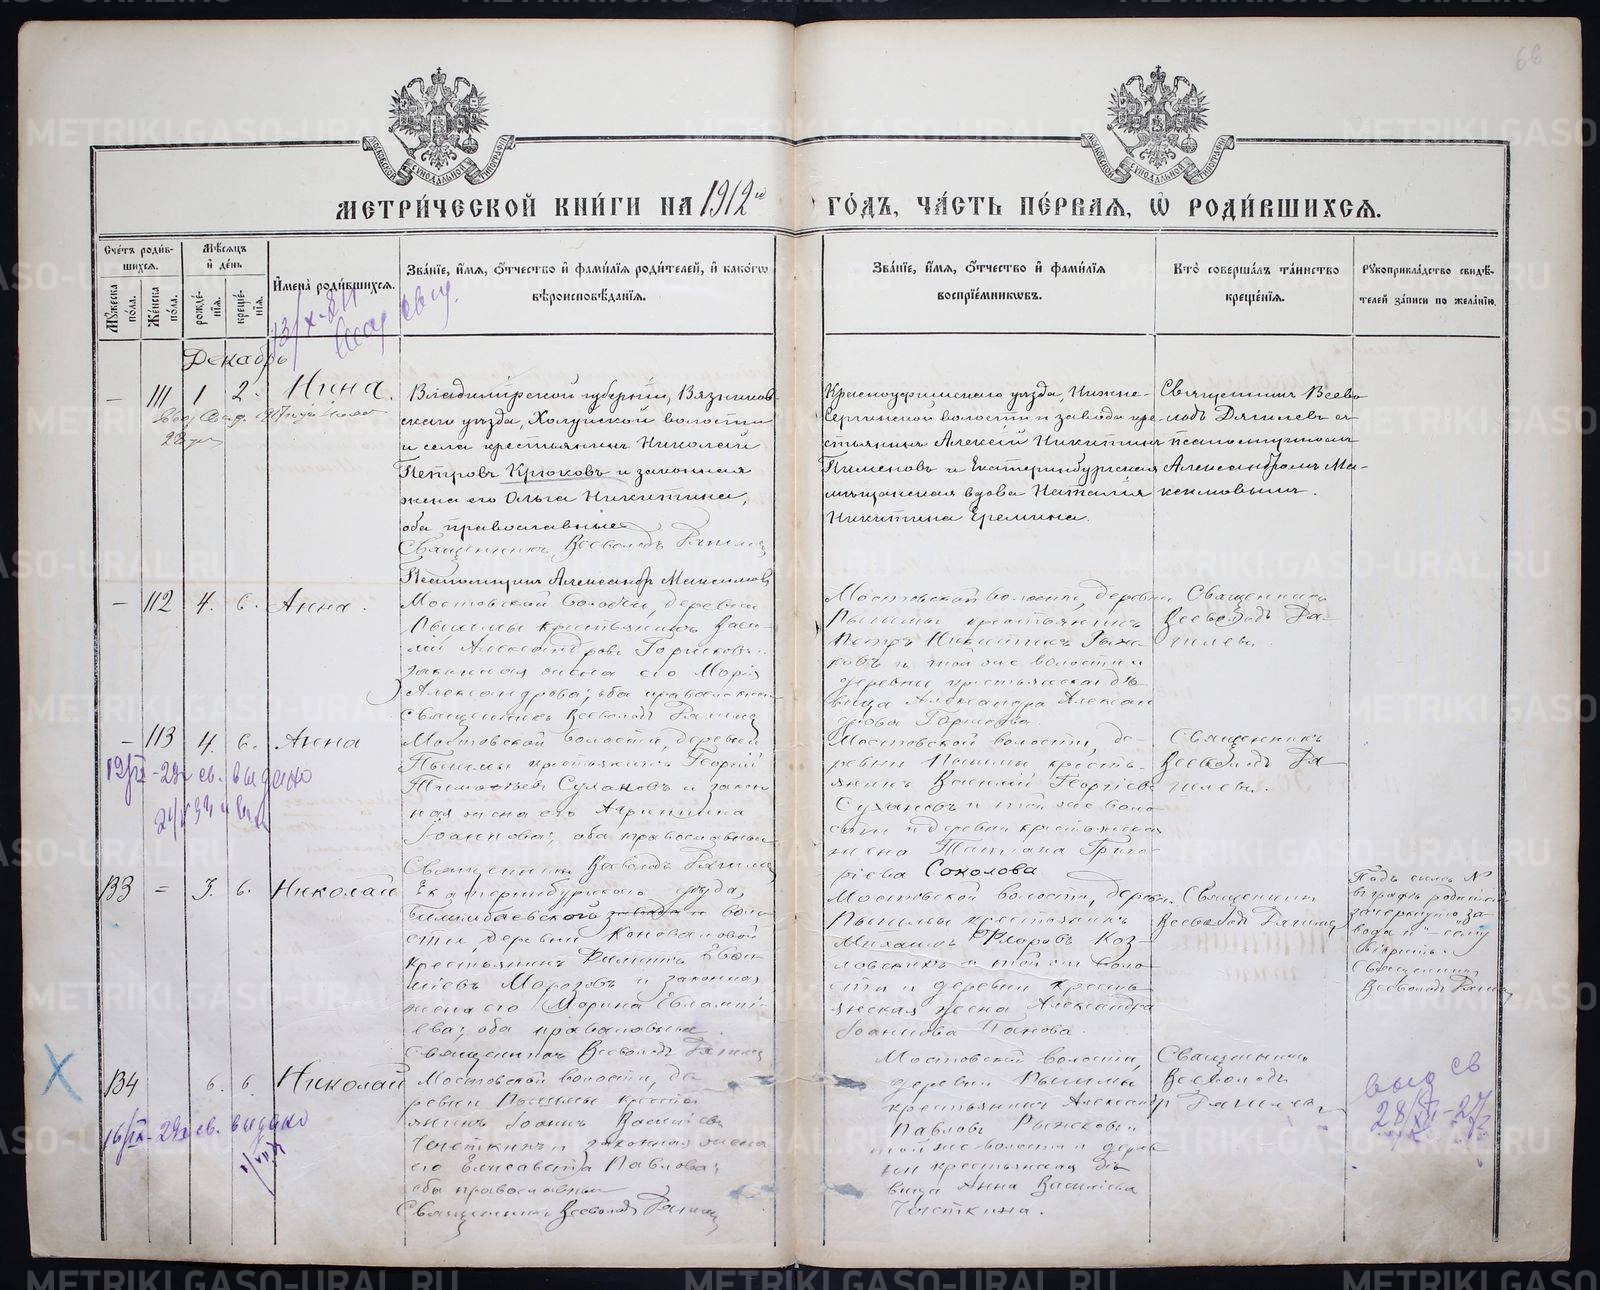 МЕТРИ́ЧЕСКОЙ КНИ́ГИ НА 1912й
ГО́ДЪ, ЧА́СТЬ ПЕ́РВАЯ, Ѡ РОДИ́ВШИХСЯ.
Сче́тъ роди́в-
шихся.
Му́жеска по́ла.
Же́нска по́ла.
Мѣ́сяцъ
и҆ де́нь
рожде́-
нїѧ.
креще́-
нїѧ.
И҆мена̀ роди́вшихся.
Зва́нїе, и҆́мѧ, ѻ҆́тчество и҆ фами́лїѧ роди́телей, и҆ како́гѡ
вѣроисповѣ́данїѧ.
Зва́нїе, и҆́мѧ, ѻ҆́тчество и҆ фами́лїѧ
воспрїе́мниковъ.
Кто̀ соверша́лъ та́инство
креще́нїѧ.
Рукоприкла́дство свидѣ́-
телей за́писи по жела́нїю.
Декабрь
– 111 1 2. Нина.
Владимірской губерніи, Вязников
скаго уѣзда, Холуйской волости
и села крестьянинъ Николай
Петровъ Крюковъ и законная
жена его Ольга Никитина,
оба православные
Священникъ Всеволодъ
Псаломщикъ Александръ Максимовъ
Красноуфимскаго уѣзда, Нижне-
Сергинской волости и завода кре-
стьянинъ Алексѣй Никитинъ
Пименовъ и Екатеринбургская
мѣщанская вдова Наталія
Никитина Еремина.
Священникъ Всево
лодъ Дягилевъ съ
псаломщикомъ
Александромъ Ма-
ксимовымъ.
– 112 4. 6. Анна.
Мостовской волости, деревни
Пышмы крестьянинъ Васи-
лій Александровъ
законная жена его Марія
Александрова; оба православные
Священникъ Всеволодъ
Мостовской волости, деревни
Пышмы крестьянинъ
Петръ Никитинъ Рыже-
ковъ и той же волости и
деревни крестьянская дѣ
вица Александра Алексан
дрова
Священникъ
Всеволодъ Дя-
гилевъ.
– 113 4. 6. Анна
19/ -29г св. выдано
Мостовской волости, деревни
Пышмы крестьянинъ Георгій
Тимофѣевъ Сулановъ и закон
ная жена его Агрипина
Іоаннова; оба православные
Священникъ Всеволодъ
Мостовской волости, де-
ревни Пышмы кресть-
янинъ Василій Георгіевъ
и той же воло
сти и деревни крестьянская
жена Татіана Григо-
ріева Соколова
Священникъ
Всеволодъ Дя-
гилевъ.
133 = 3. 6. Николай
Екатеринбургскаго уѣзда,
Билимбаевской завода и воло
сти, деревни Коноваловой
крестьянинъ
Морозовъ и законная
жена его Марина Евлампі-
ева; оба православные.
Священникъ Всеволодъ
Мостовской волости, дерев.
Пышмы крестьянинъ
Михаилъ Флоровъ Коз-
ловскихъ и той же воло-
сти и деревни кресть-
янская жена Александра
Іоаннова Панова.
Священникъ
Всеволодъ
въ графѣ родители
зачеркнуто „за-
вода и“ – сему
вѣрить.
Священникъ
Всеволодъ
134 6. 6. Николай
16/IX-29г св. выдано
Мостовской волости, де
ревни Пышмы кресть
янинъ Іоаннъ Васильевъ
Чисткинъ и законная жена
его Елисавета Павлова;
оба православные
Священникъ Всеволодъ
Мостовской волости,
деревни Пышмы
крестьянинъ Александръ
Павловъ Рыжковъ и
той же волости и дерев
ни крестьянская дѣ
вица Анна Васильева
Чисткина.
Священникъ
Всеволодъ
Дягилевъ
выд св